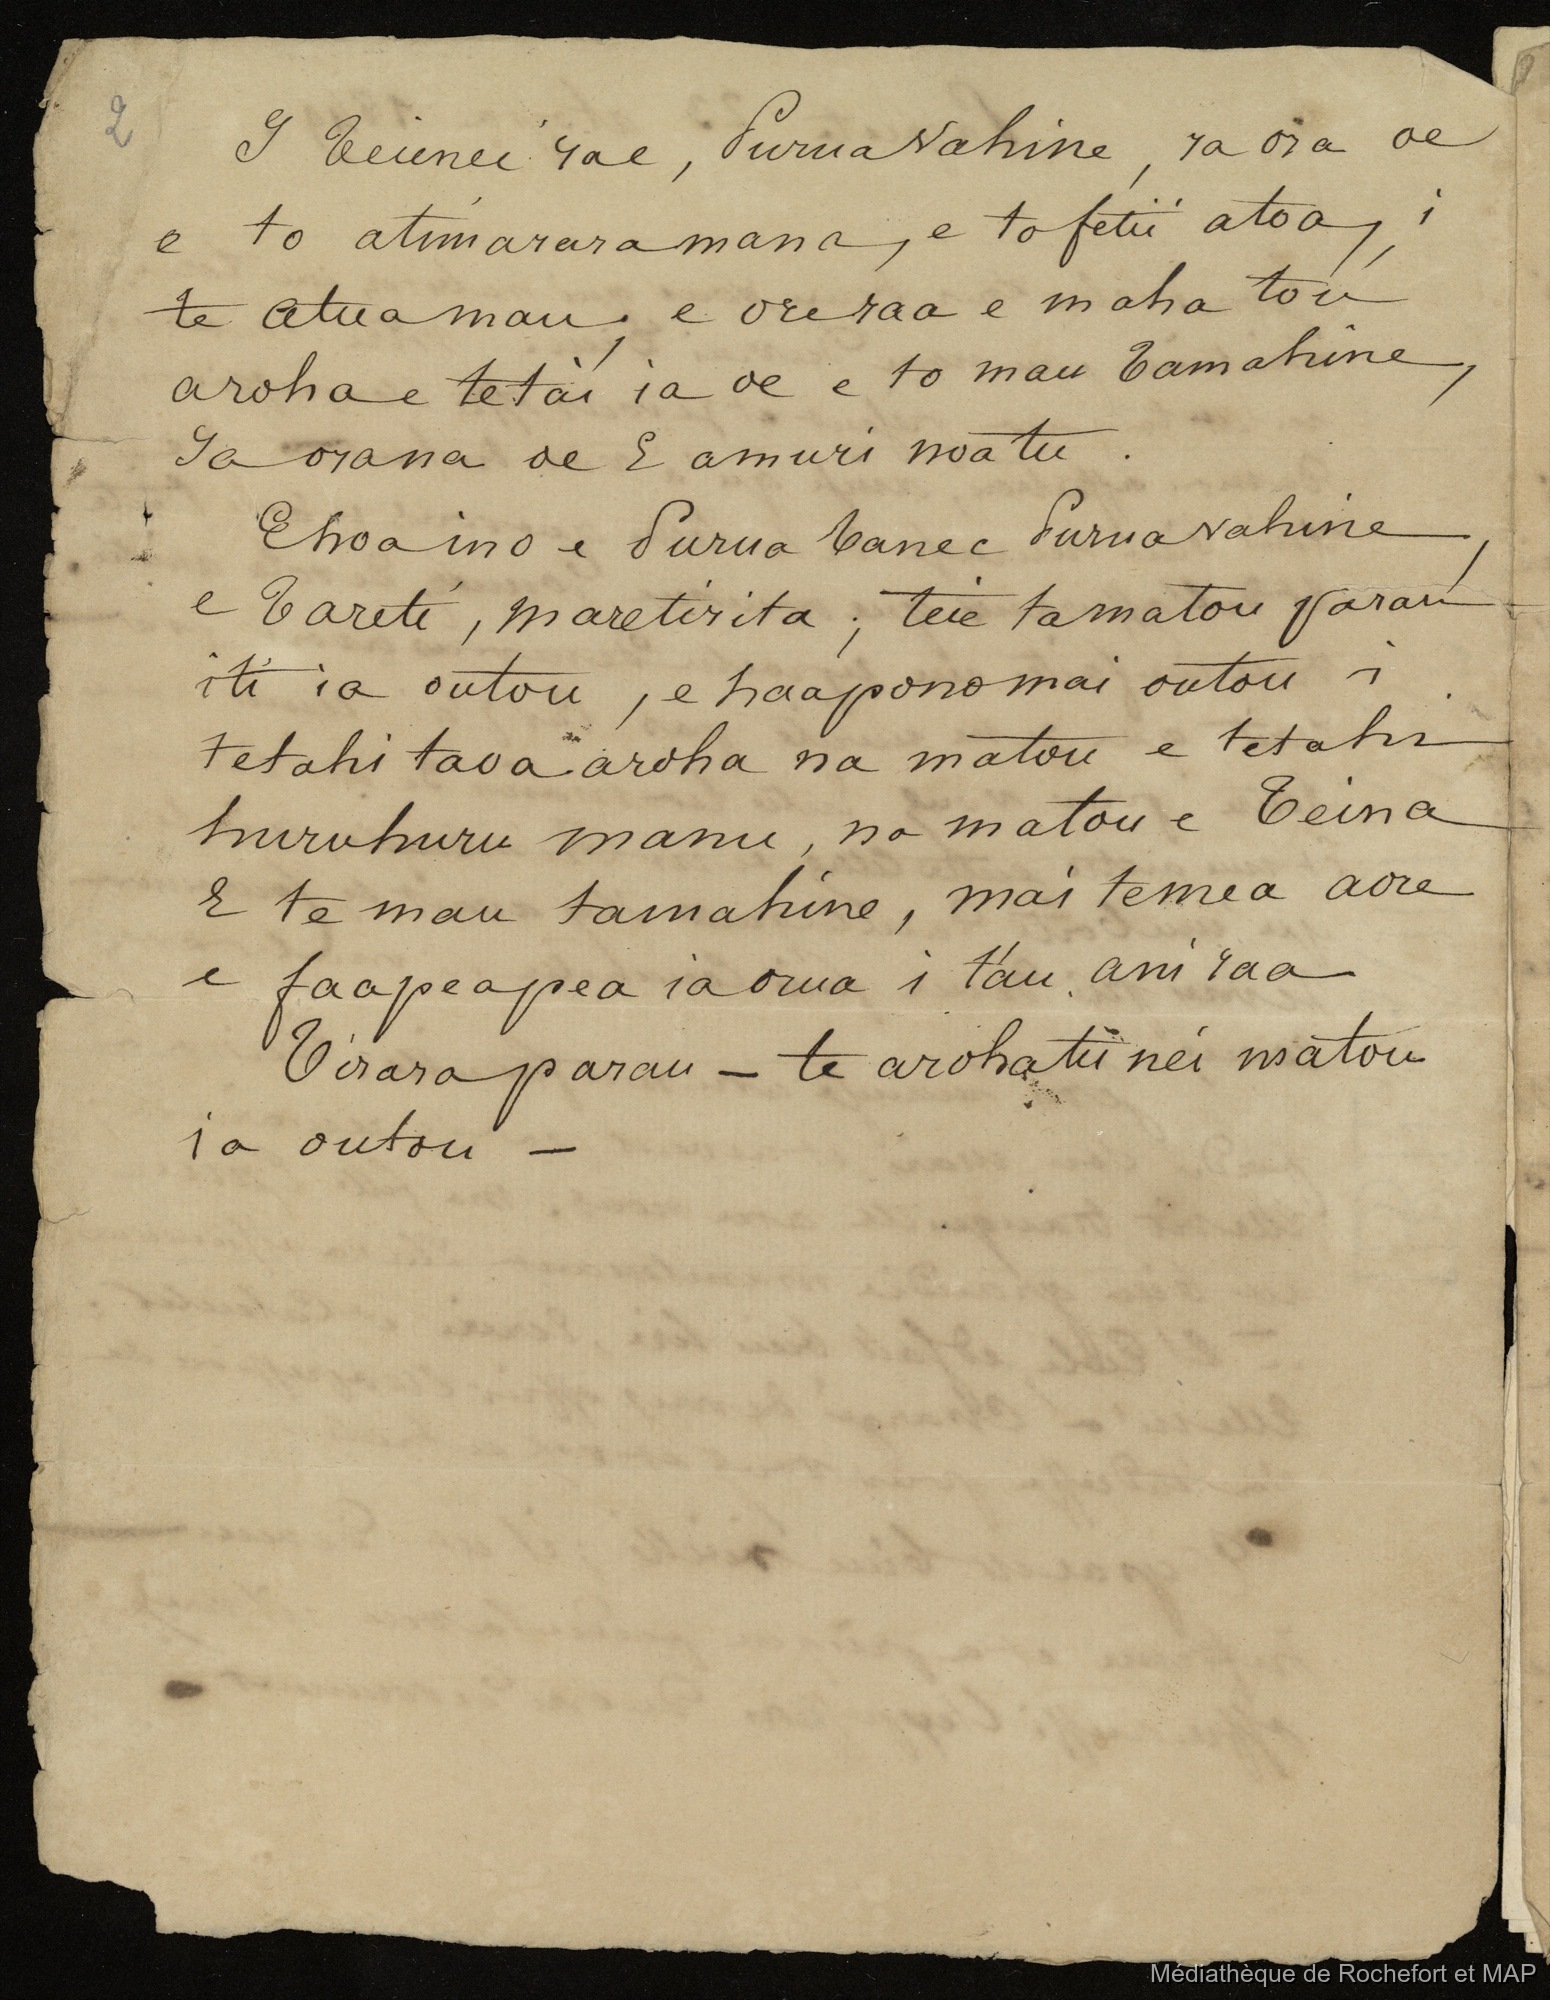 2
I Teienei rae, Purua Vahine, ra ora oe
e to atimararamana, e to fetii atoa, i
te Atua mau, e ore raa e maha tou
aroha e tetai ia oe e to mau Tamahine,
Ia orana oe E amuri noatu.
Ehoa ino e Purua Tane e Purua Vahine,
e Tareti, maretirita; teie ta matou parau
iti ia outou, e haapono mai outou i
tetahi taoa aroha na matou e tetahi
huruhuru manu, no matou e Teina
E te mau tamahine, mai te mea aore
e faapeapea ia orua i tau ani raa
Tirara parau - te arohatu nei matou
ia outou -
Médiathèque de Rochefort et MAP